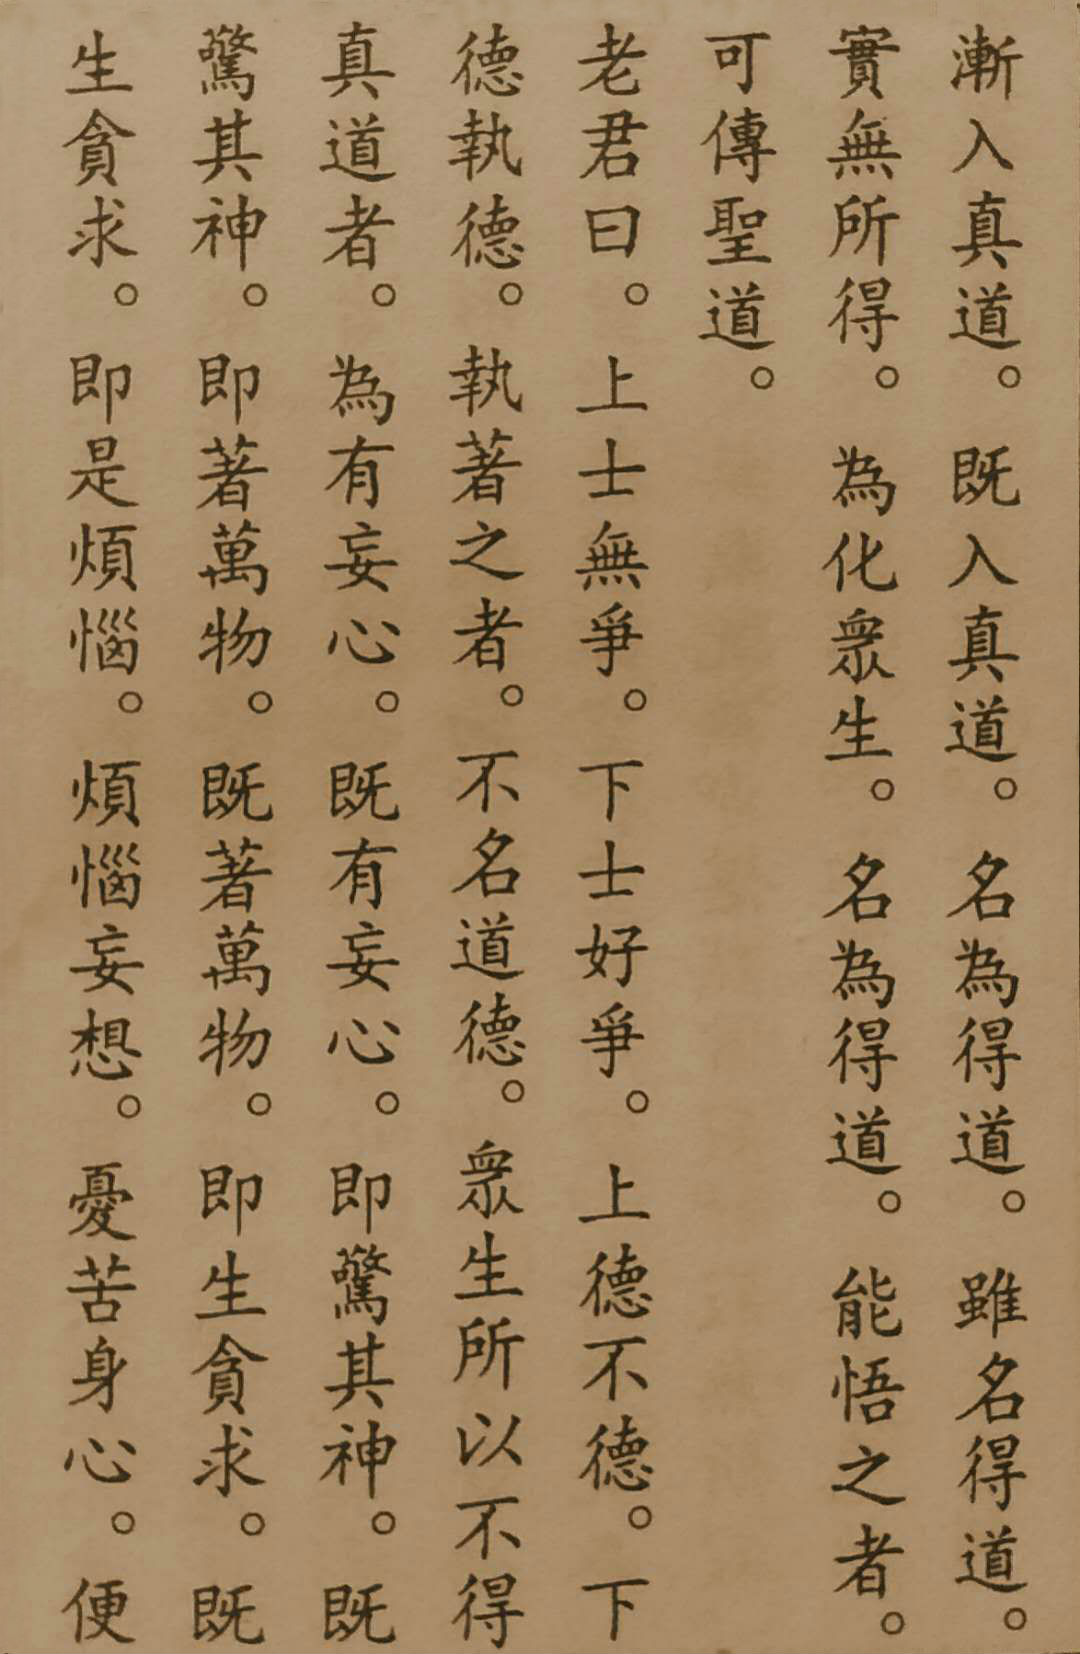 漸入真道。既入真道。名為得道。雖名得道。
實無所得。為化眾生。名為得道。能悟之者。
可傳聖道。
老君曰。上士無爭。下士好爭。上德不德。下
德執德。執著之者。不名道德。眾生所以不得
真道者。為有妄心。既有妄心。即驚其神。既
驚其神。即著萬物。既著萬物。即生貪求。既
生貪求。即是煩惱。煩惱妄想。憂苦身心。便